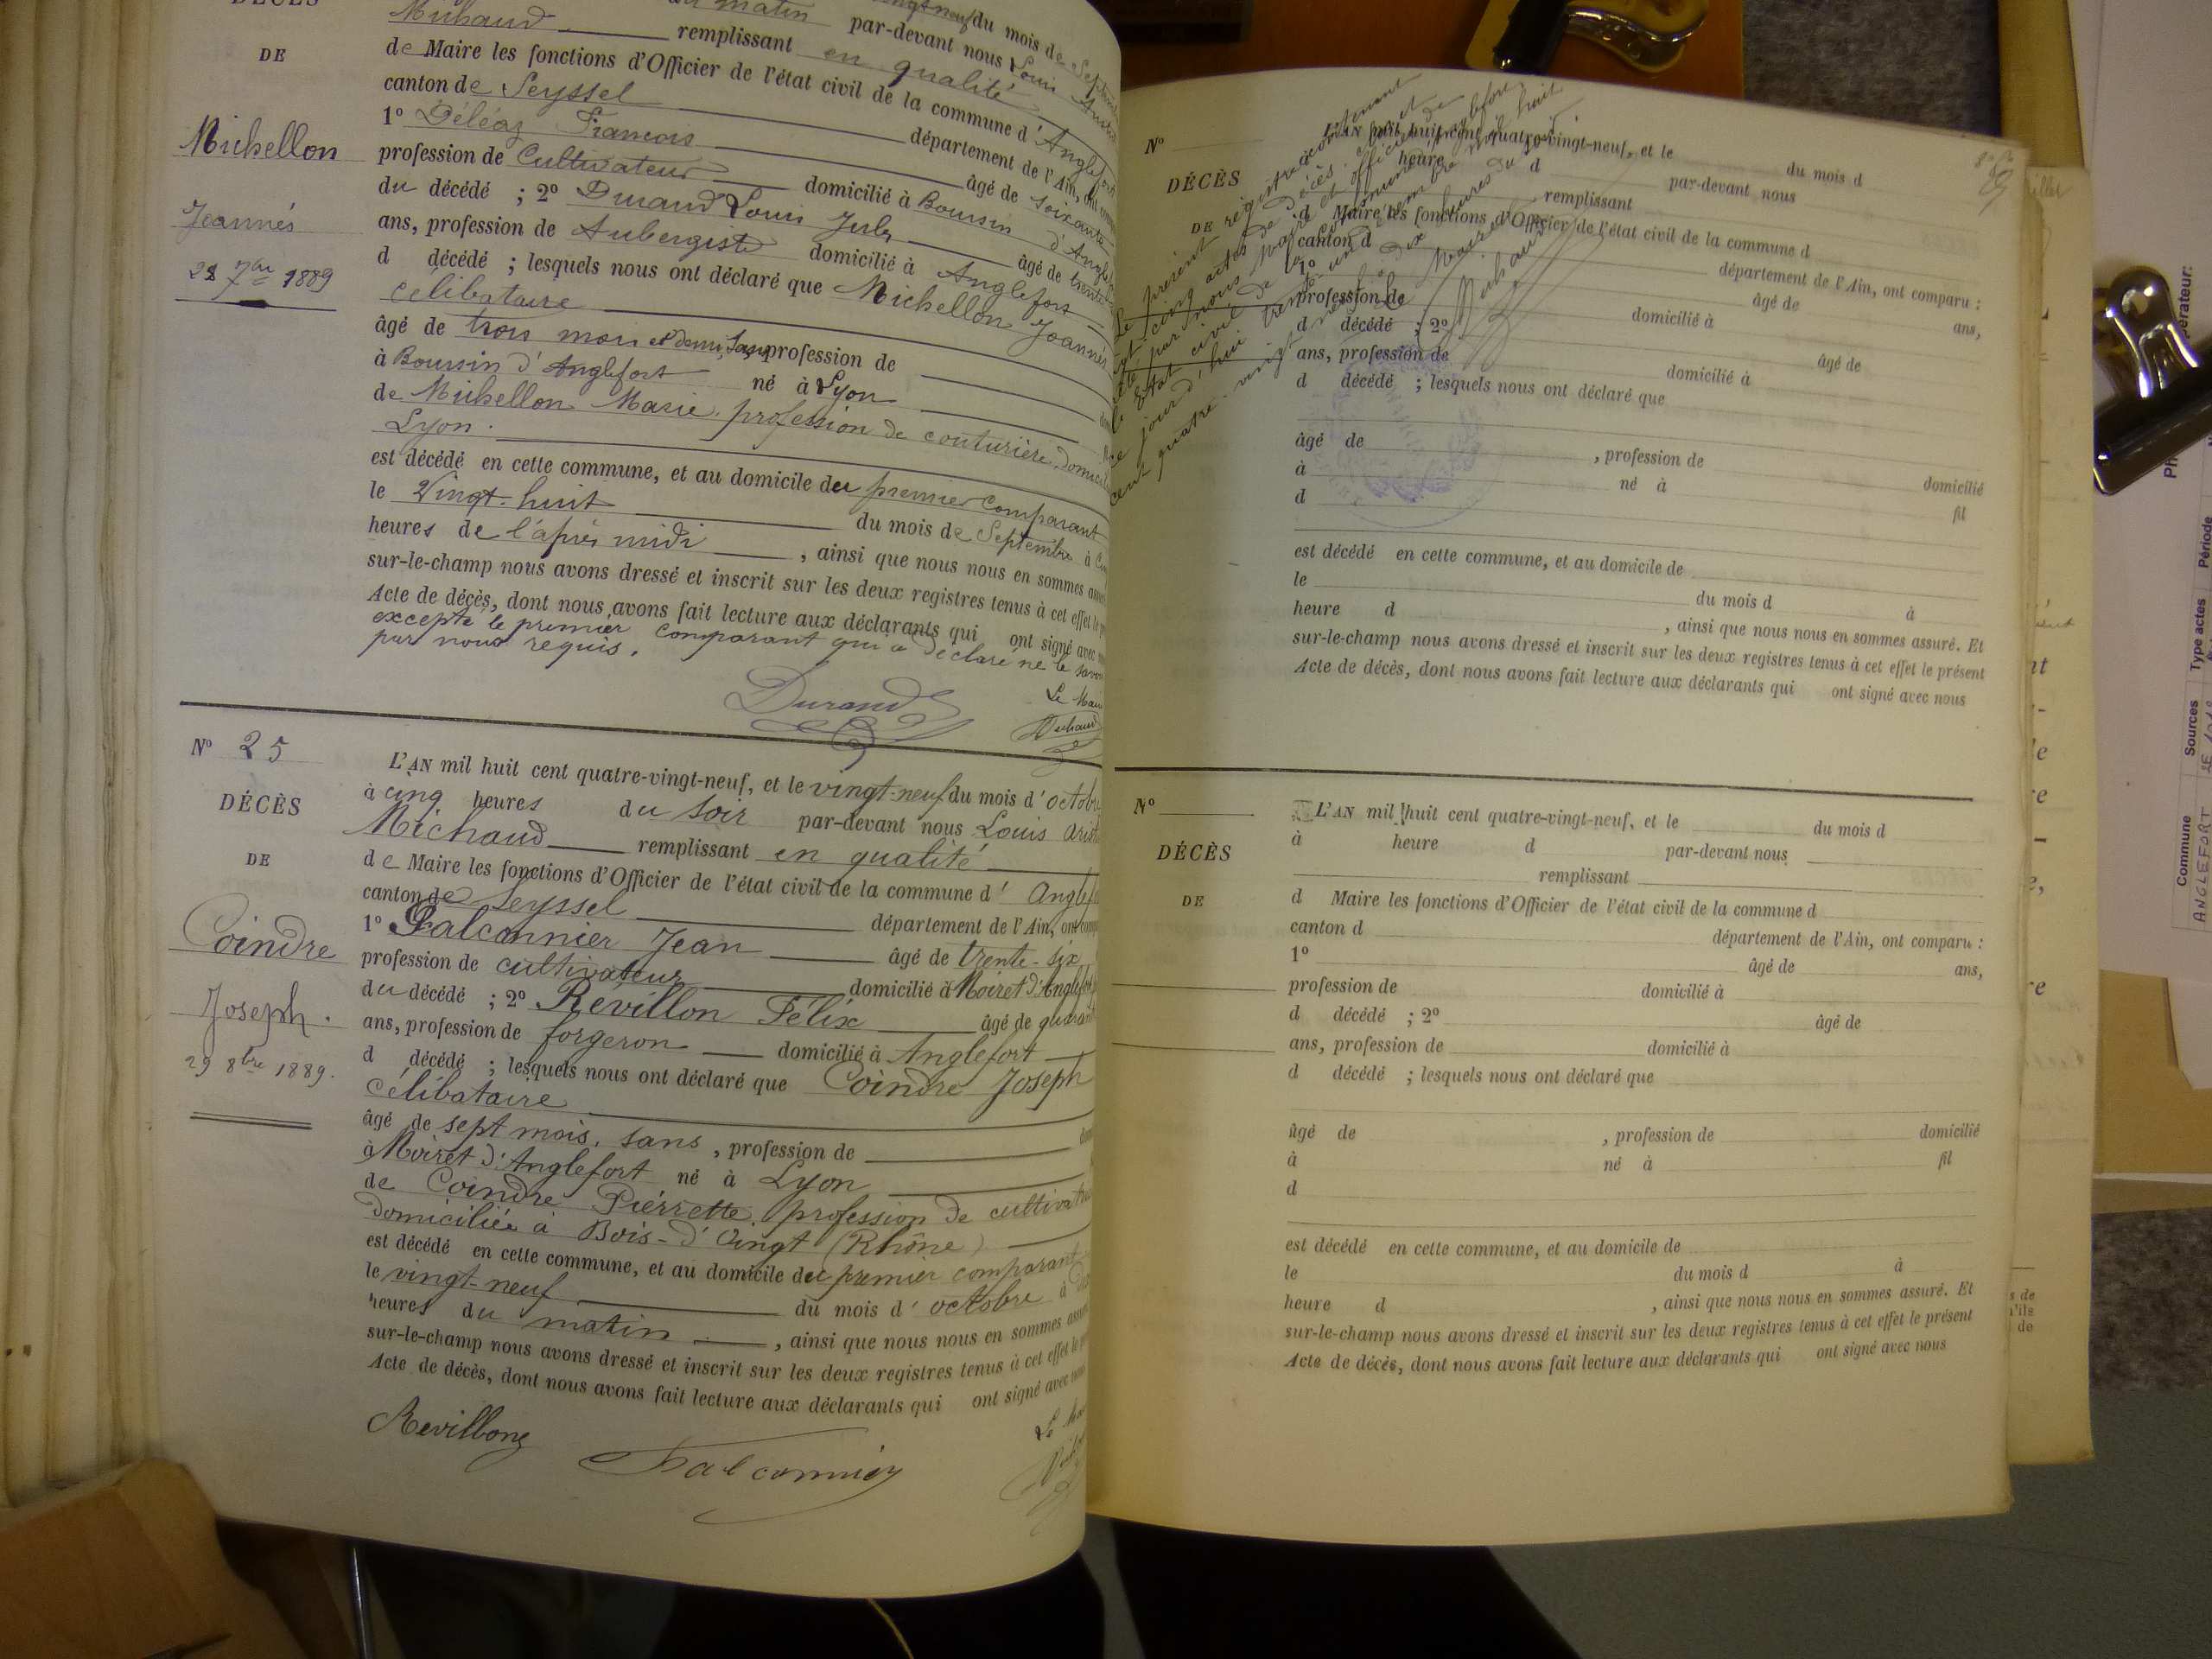 DÉCÈS
DE
Michellon
Jeannés
28 7bre 1889
du matin par-devant nous Louis
Michaud remplissant en qualité
de Maire les fonctions d'Officier de l'état civil de la commune d'Anglefort
canton de Seyssel département de l'Ain, ont
1° Déléaz Francois âgé de soixante
profession de Cultivateur domicilié à Boursin d'Anglefort
du décédé ; 2° Durand Louis Jules âgé de trente
ans, profession de Aubergiste domicilié à Anglefort
d décédé ; lesquels nous ont déclaré que Michellon Joannès
célibataire
âgé de trois mois et demi, sans profession de
à Boursin d'Anglefort né à Lyon
de Michellon Marie, profession de couturière,
Lyon.
est décédé en cette commune, et au domicile du premier comparant
le Vingt-huit du mois de Septembre à
heures de l'après midi , ainsi que nous nous en sommes
sur-le-champ nous avons dressé et inscrit sur les deux registres tenus à cet effet le
Acte de décès, dont nous avons fait lecture aux déclarants qui ont signé avec
excepté le premier comparant qui a déclaré ne le savoir
par nous requis.
Durand
Le Maire
Michaud
N° 25
DÉCÈS
DE
Coindre
Joseph.
29 8bre 1889.
L'AN mil huit cent quatre-vingt-neuf, et le vingt-neuf du mois d'octobre
à cinq heures du soir par-devant nous Louis
Michaud remplissant en qualité
de Maire les fonctions d'Officier de l'état civil de la commune d'
canton de Seyssel département de l'Ain, ont
1° Falconnier Jean âgé de trente-six
profession de cultivateur domicilié à Moiret d'Anglefort
du décédé ; 2° Révillon Félix âgé de
ans, profession de forgeron domicilié à Anglefort
d décédé ; lesquels nous ont déclaré que Coindre Joseph
célibataire
âgé de sept mois, sans , profession de
à Moiret d'Anglefort né à Lyon
de Coindre Pierrette, profession de
domiciliée à Bois-d'Oingt (Rhône)
est décédé en cette commune, et au domicile du premier comparant
le vingt-neuf du mois d'octobre à
heures du matin , ainsi que nous nous en sommes
sur-le-champ nous avons dressé et inscrit sur les deux registres tenus à cet effet le
Acte de décès, dont nous avons fait lecture aux déclarants qui ont signé avec
Revillong
Falconnier
Le
Le présent registre contenant
vingt cinq actes de décès
par nous Maire et officier de
l'état civil de la commune d'Anglefort
ce jour d'hui trente un décembre mil huit
cent quatre-vingt neuf à dix heures du soir
Le Maire
Michaud
N°
DÉCÈS
DE
L'AN mil huit cent quatre-vingt-neuf, et le du mois d
à heure d par-devant nous
remplissant
d Maire les fonctions d'Officier de l'état civil de la commune d
canton d département de l'Ain, ont comparu :
1° âgé de ans,
profession de domicilié à
d décédé ; 2° âgé de
ans, profession de domicilié à
d décédé ; lesquels nous ont déclaré que
âgé de , profession de domicilié
à né à fil
d
est décédé en cette commune, et au domicile de
le du mois d à
heure d , ainsi que nous nous en sommes assuré. Et
sur-le-champ nous avons dressé et inscrit sur les deux registres tenus à cet effet le présent
Acte de décès, dont nous avons fait lecture aux déclarants qui ont signé avec nous
N°
DÉCÈS
DE
L'AN mil huit cent quatre-vingt-neuf, et le du mois d
à heure d par-devant nous
remplissant
d Maire les fonctions d'Officier de l'état civil de la commune d
canton d département de l'Ain, ont comparu :
1° âgé de ans,
profession de domicilié à
d décédé ; 2° âgé de
ans, profession de domicilié à
d décédé ; lesquels nous ont déclaré que
âgé de , profession de domicilié
à né à fil
d
est décédé en cette commune, et au domicile de
le du mois d à
heure d , ainsi que nous nous en sommes assuré. Et
sur-le-champ nous avons dressé et inscrit sur les deux registres tenus à cet effet le présent
Acte de décès, dont nous avons fait lecture aux déclarants qui ont signé avec nous
Commune Sources Type actes Période
ANGLEFORT